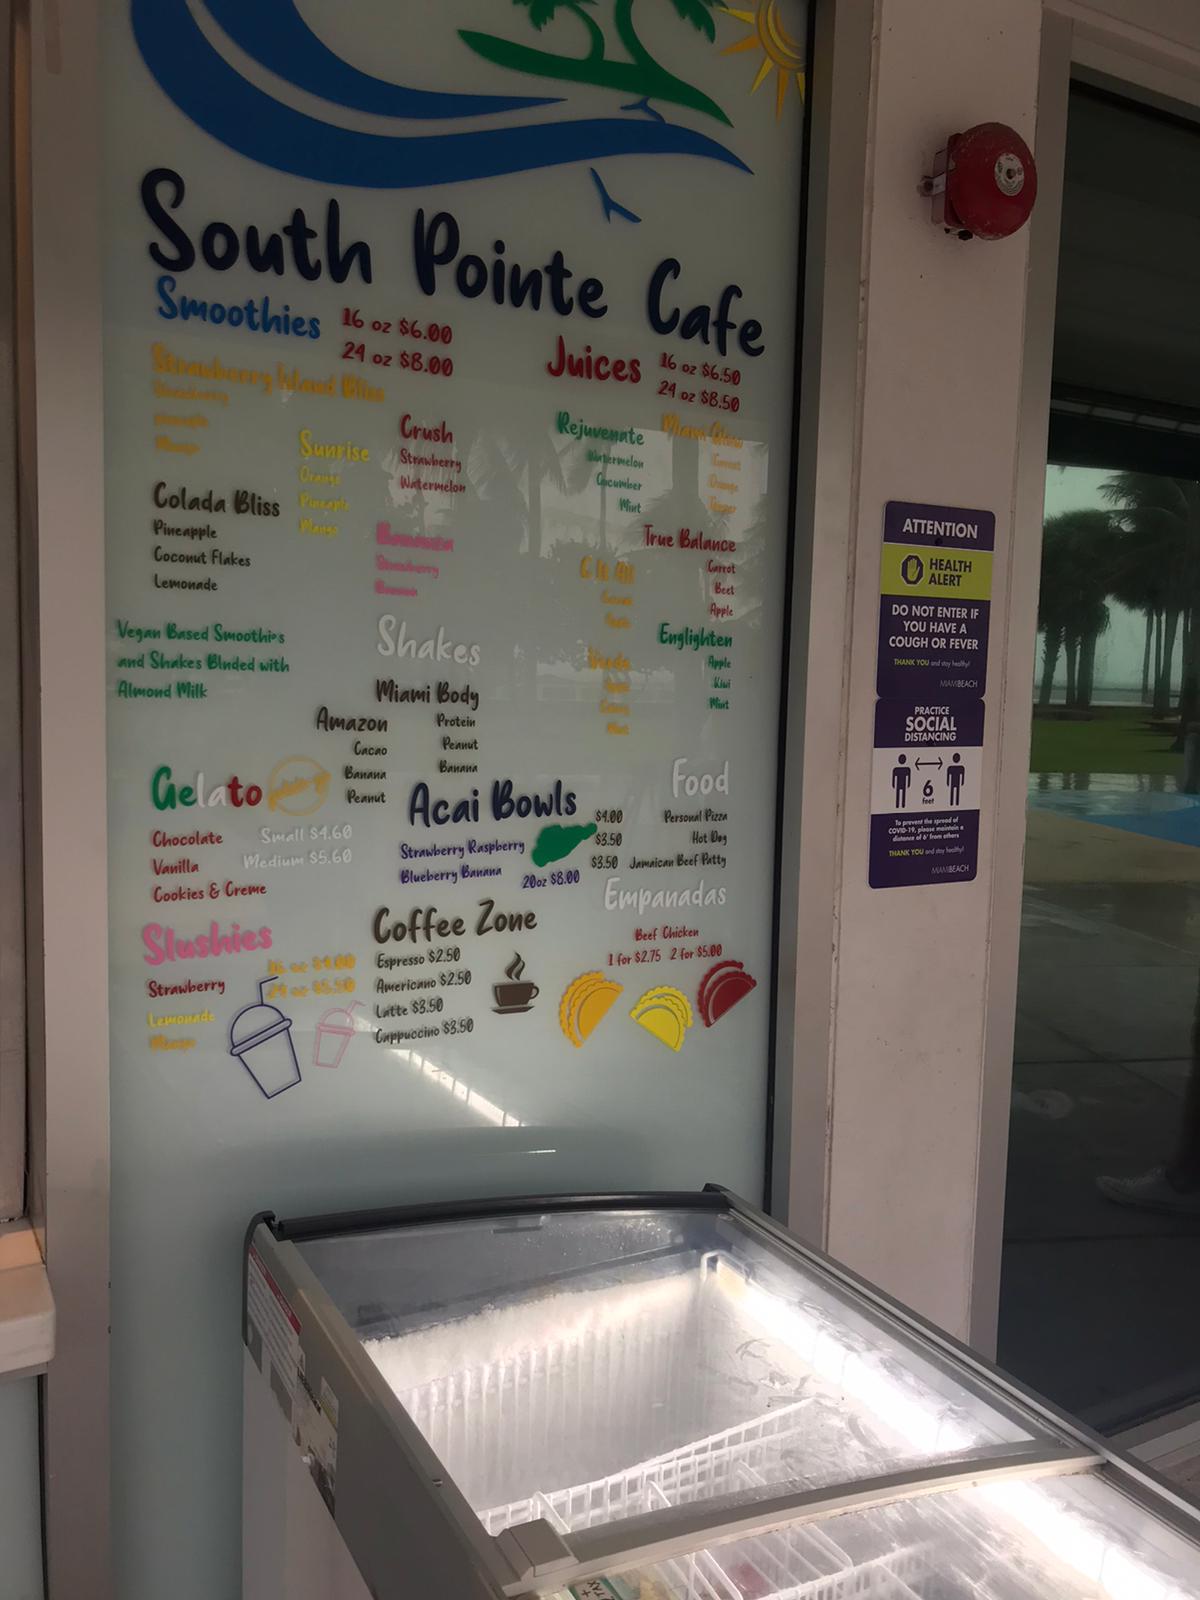 South Pointe Cafe
Smoothies
16 oz $6.00
24 oz $8.00
Strawberry Island Bliss
Strawberry
Pineapple
Mango
Sunrise
Orange
Pineapple
Mango
Crush
Strawberry
Watermelon
Colada Bliss
Pineapple
Coconut Flakes
Lemonade
Strawberry
Banana
Vegan Based Smoothies
and Shakes Blnded with
Almond Milk
Shakes
Miami Body
Protein
Peanut
Banana
Amazon
Cacao
Banana
Peanut
Juices
16 oz $6.50
24 oz $8.50
Rejuvenate
Watermelon
Cucumber
Mint
Miami Glow
Carrot
Orange
True Balance
Carrot
Beet
Apple
C It All
Englighten
Apple
Kiwi
Mint
Celery
Mint
Gelato
Chocolate
Vanilla
Cookies & Creme
Small $4.60
Medium $5.60
Acai Bowls
Strawberry Raspberry
Blueberry Banana
20oz $8.00
Food
$4.00 Personal Pizza
$3.50 Hot Dog
$3.50 Jamaican Beef Patty
Empanadas
Beef Chicken
1 for $2.75 2 for $5.00
Slushies
16 oz $4.00
24 oz $5.50
Strawberry
Lemonade
Mango
Coffee Zone
Espresso $2.50
Americano $2.50
Latte $3.50
Cappuccino $3.50
ATTENTION
HEALTH
ALERT
DO NOT ENTER IF
YOU HAVE A
COUGH OR FEVER
THANK YOU and stay healthy!
MIAMIBEACH
PRACTICE
SOCIAL
DISTANCING
6
feet
To prevent the spread of
COVID-19, please maintain a
distance of 6' from others
THANK YOU and stay healthy!
MIAMIBEACH